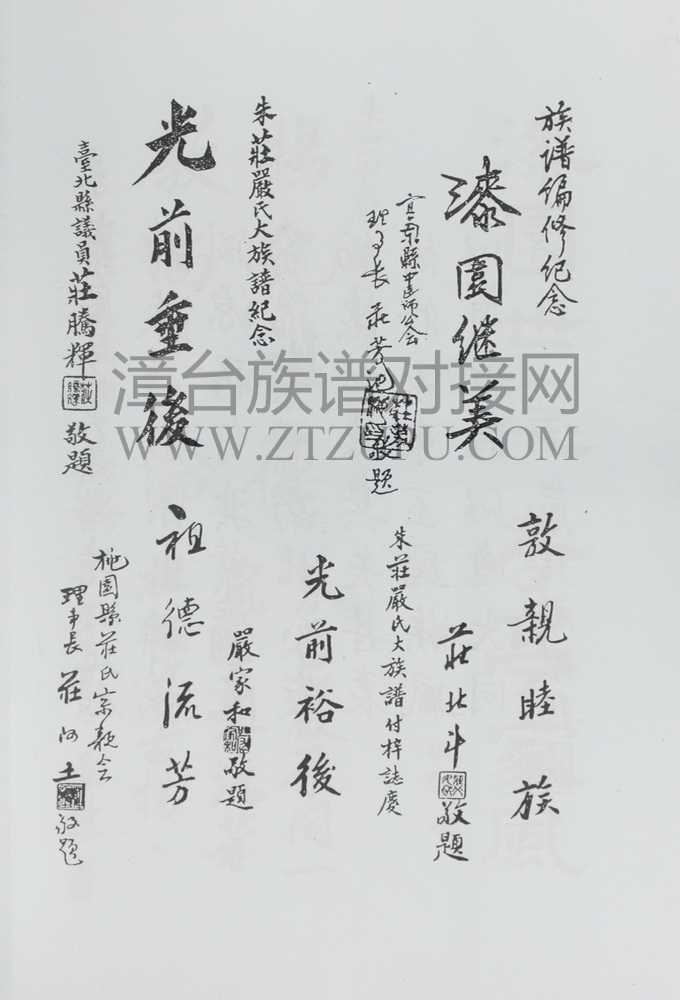 族谱编修纪念
漆園继美
宜蘭縣中医師公会
理事长 莊芳
敬題
朱莊嚴氏大族譜紀念
光前重後
臺北縣議員莊騰輝
敬題
敦親睦族
莊北斗
敬題
朱莊嚴氏大族譜付梓誌慶
光前裕後
嚴家和
敬題
祖德流芳
桃園縣莊氏宗親会
理事長 莊河土
敬題
漳台族谱对接网
WWW.ZTZUPU.COM